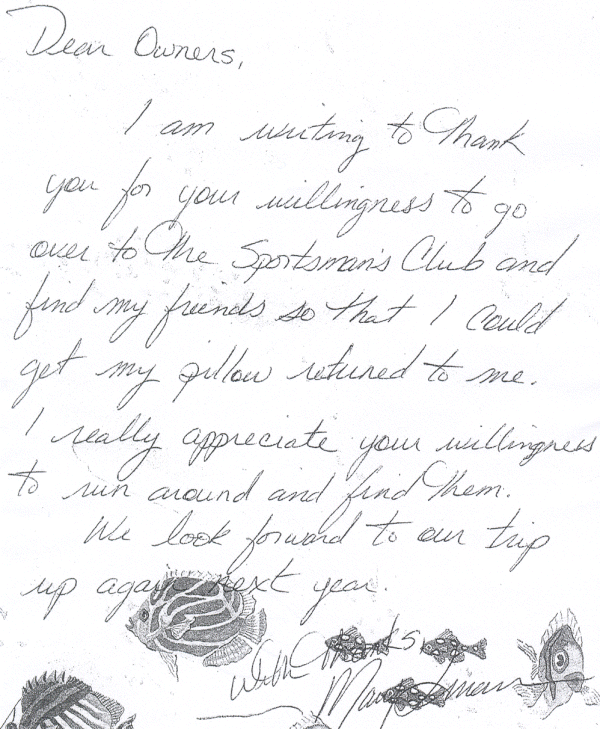 Dear Owners,
I am writing to thank
you for your willingness to go
over to the Sportsman's Club and
find my friends so that I could
get my pillow retuned to me.
I really appreciate your willingness
to run around and find them.
We look forward to our trip
up again next year.
With Thanks,